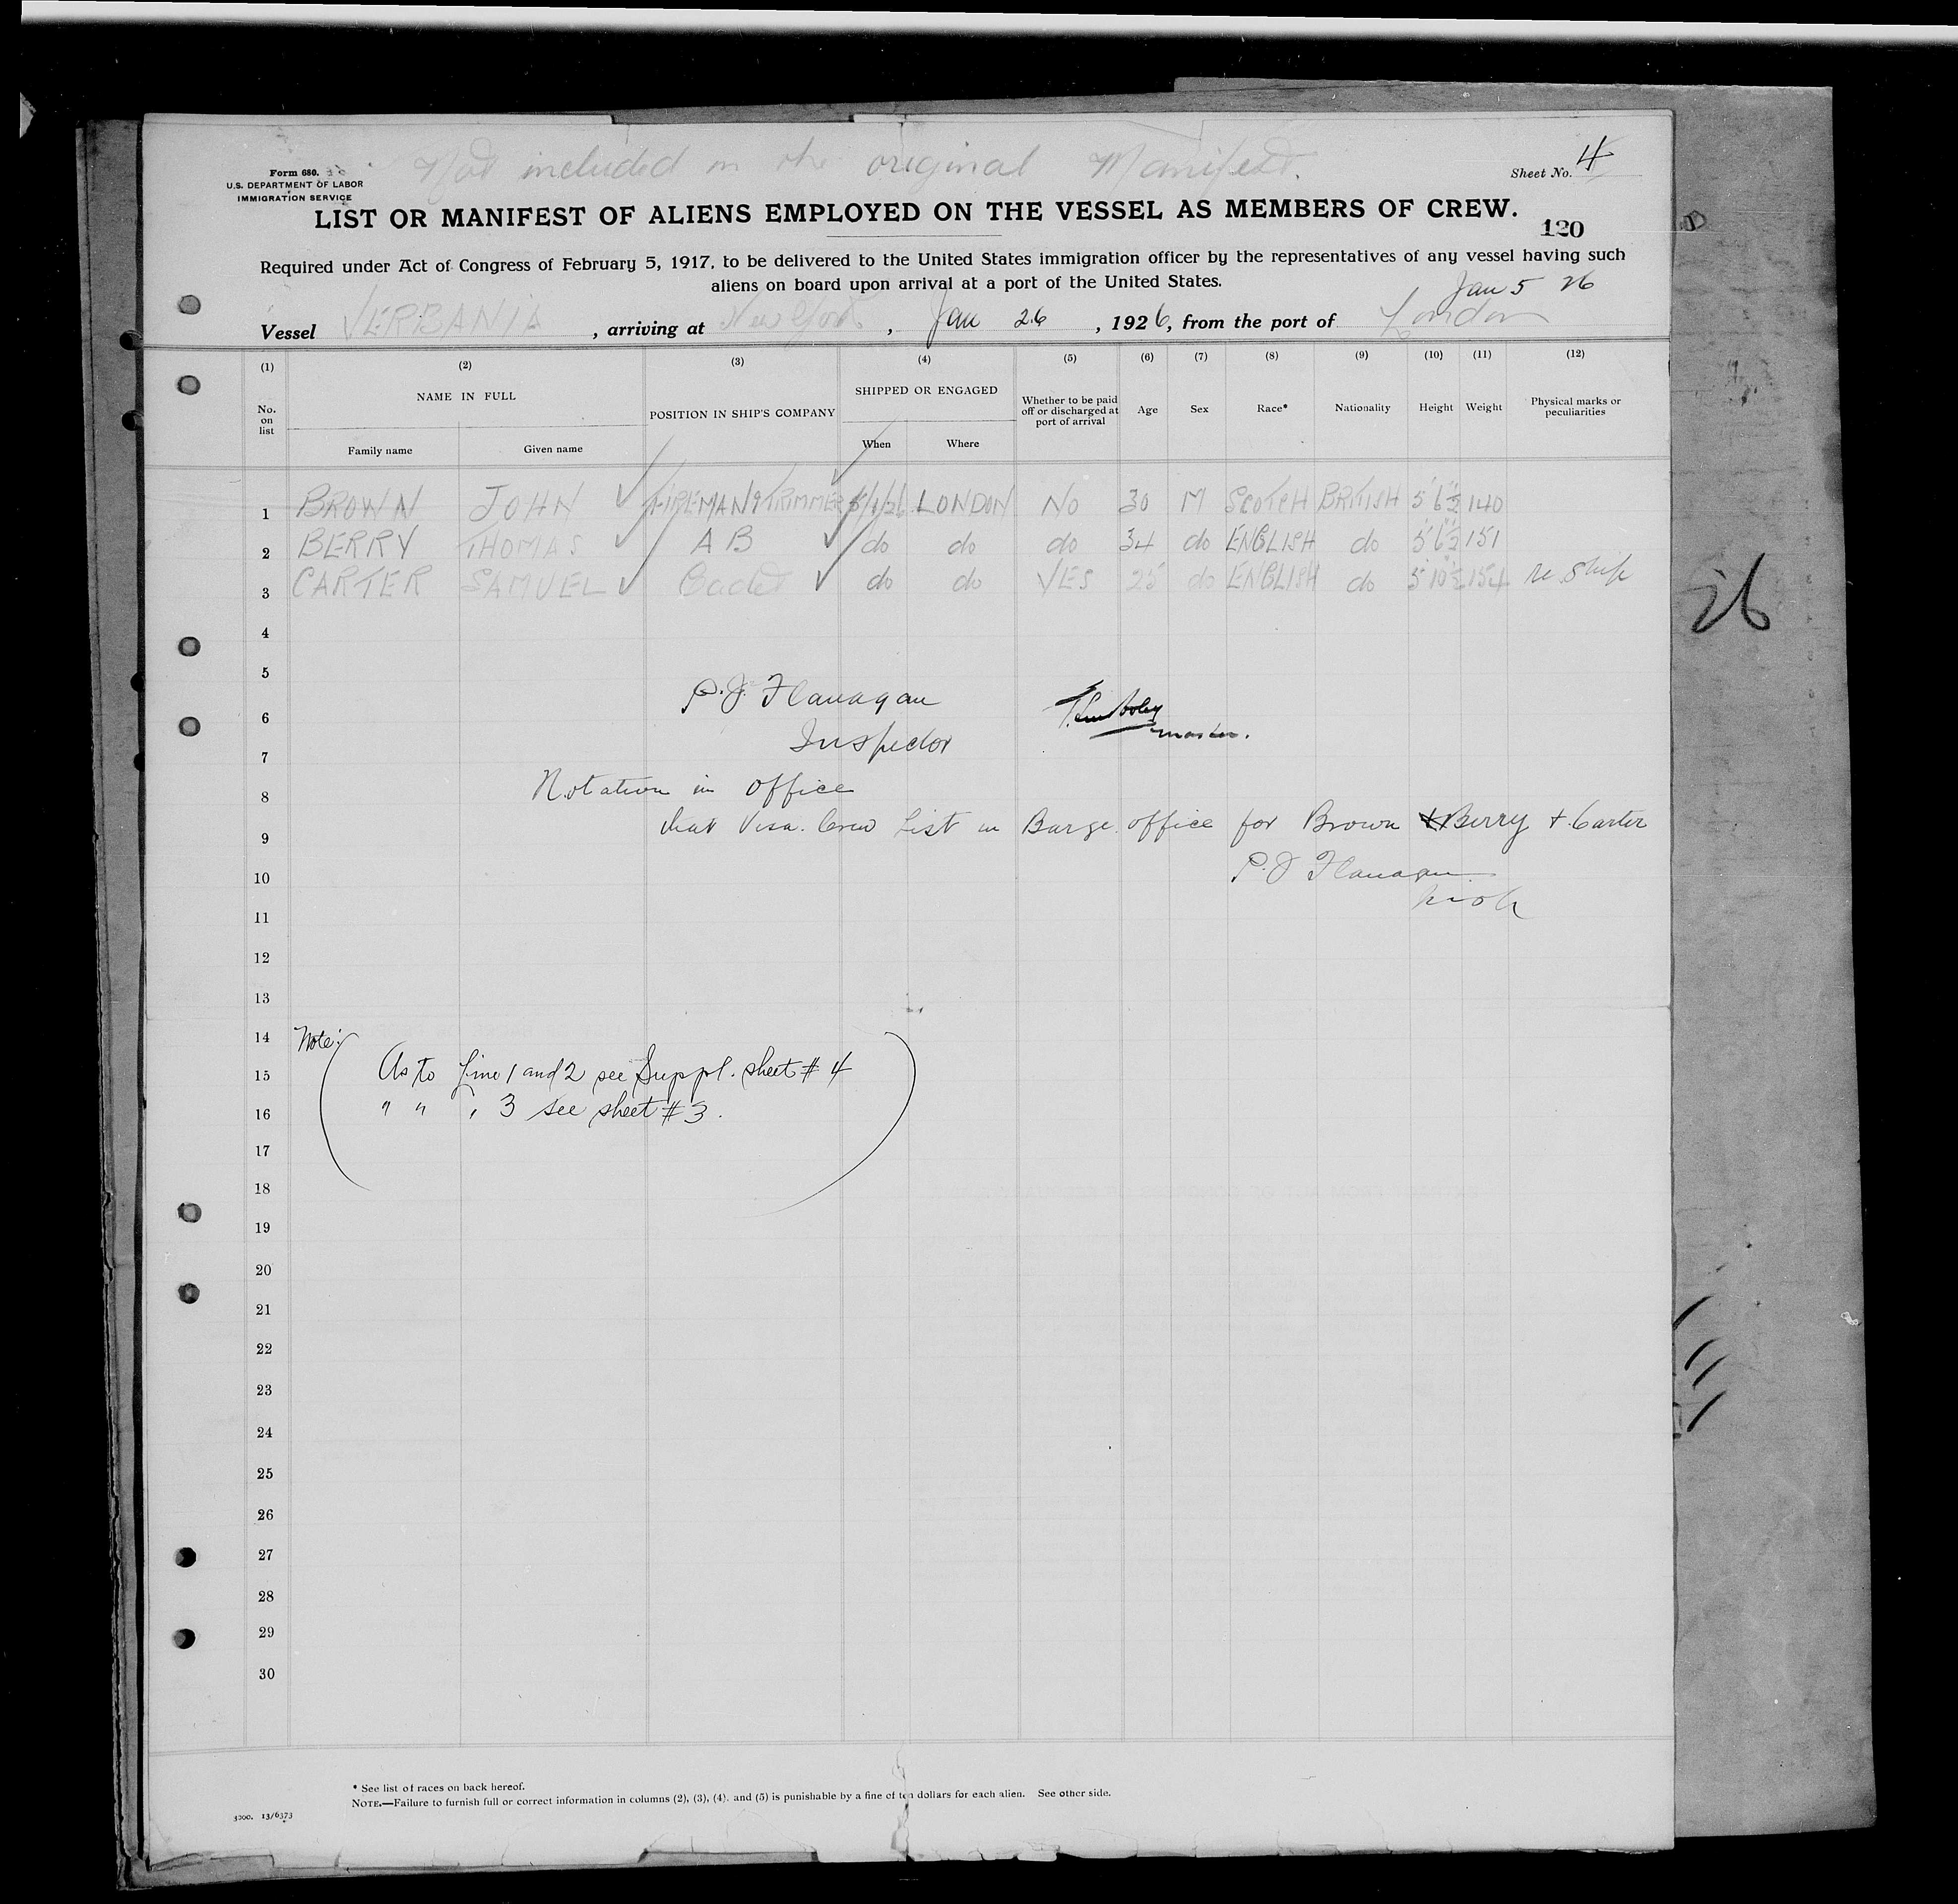 Not included on the original Manifest.
Form 680.
U.S. DEPARTMENT OF LABOR
IMMIGRATION SERVICE
Sheet No. 4
LIST OR MANIFEST OF ALIENS EMPLOYED ON THE VESSEL AS MEMBERS OF CREW.
120
Required under Act of Congress of February 5, 1917, to be delivered to the United States immigration officer by the representatives of any vessel having such
aliens on board upon arrival at a port of the United States.
Jan 5 26
Vessel VERBANIA, arriving at New York, Jan 26, 1926, from the port of London
(1) (2) (3) (4) (5) (6) (7) (8) (9) (10) (11) (12)
No. on list NAME IN FULL POSITION IN SHIP'S COMPANY SHIPPED OR ENGAGED Whether to be paid off or discharged at port of arrival Age Sex Race* Nationality Height Weight Physical marks or peculiarities
Family name Given name When Where
1 BROWN JOHN FIREMAN & TRIMMER 5/1/26 LONDON NO 30 M SCOTCH BRITISH 5'6½" 140
2 BERRY THOMAS A B do do do 34 do ENGLISH do 5'6½" 151
3 CARTER SAMUEL Cadet do do YES 25 do ENGLISH do 5'10½" 154 re ship
4
5
P.J. Flanagan
6
master.
Inspector
7
Notation in office
8
that Visa. Crew List in Barge office for Brown & Berry + Carter
9
P.J Flanagan
10
11
12
13
14 Note:
15 As to Line 1 and 2 see Suppl. sheet # 4
16 " " " 3 see sheet # 3.
17
18
19
20
21
22
23
24
25
26
27
28
29
30
* See list of races on back hereof.
NOTE.—Failure to furnish full or correct information in columns (2), (3), (4), and (5) is punishable by a fine of ten dollars for each alien. See other side.
3200. 13/6373
26